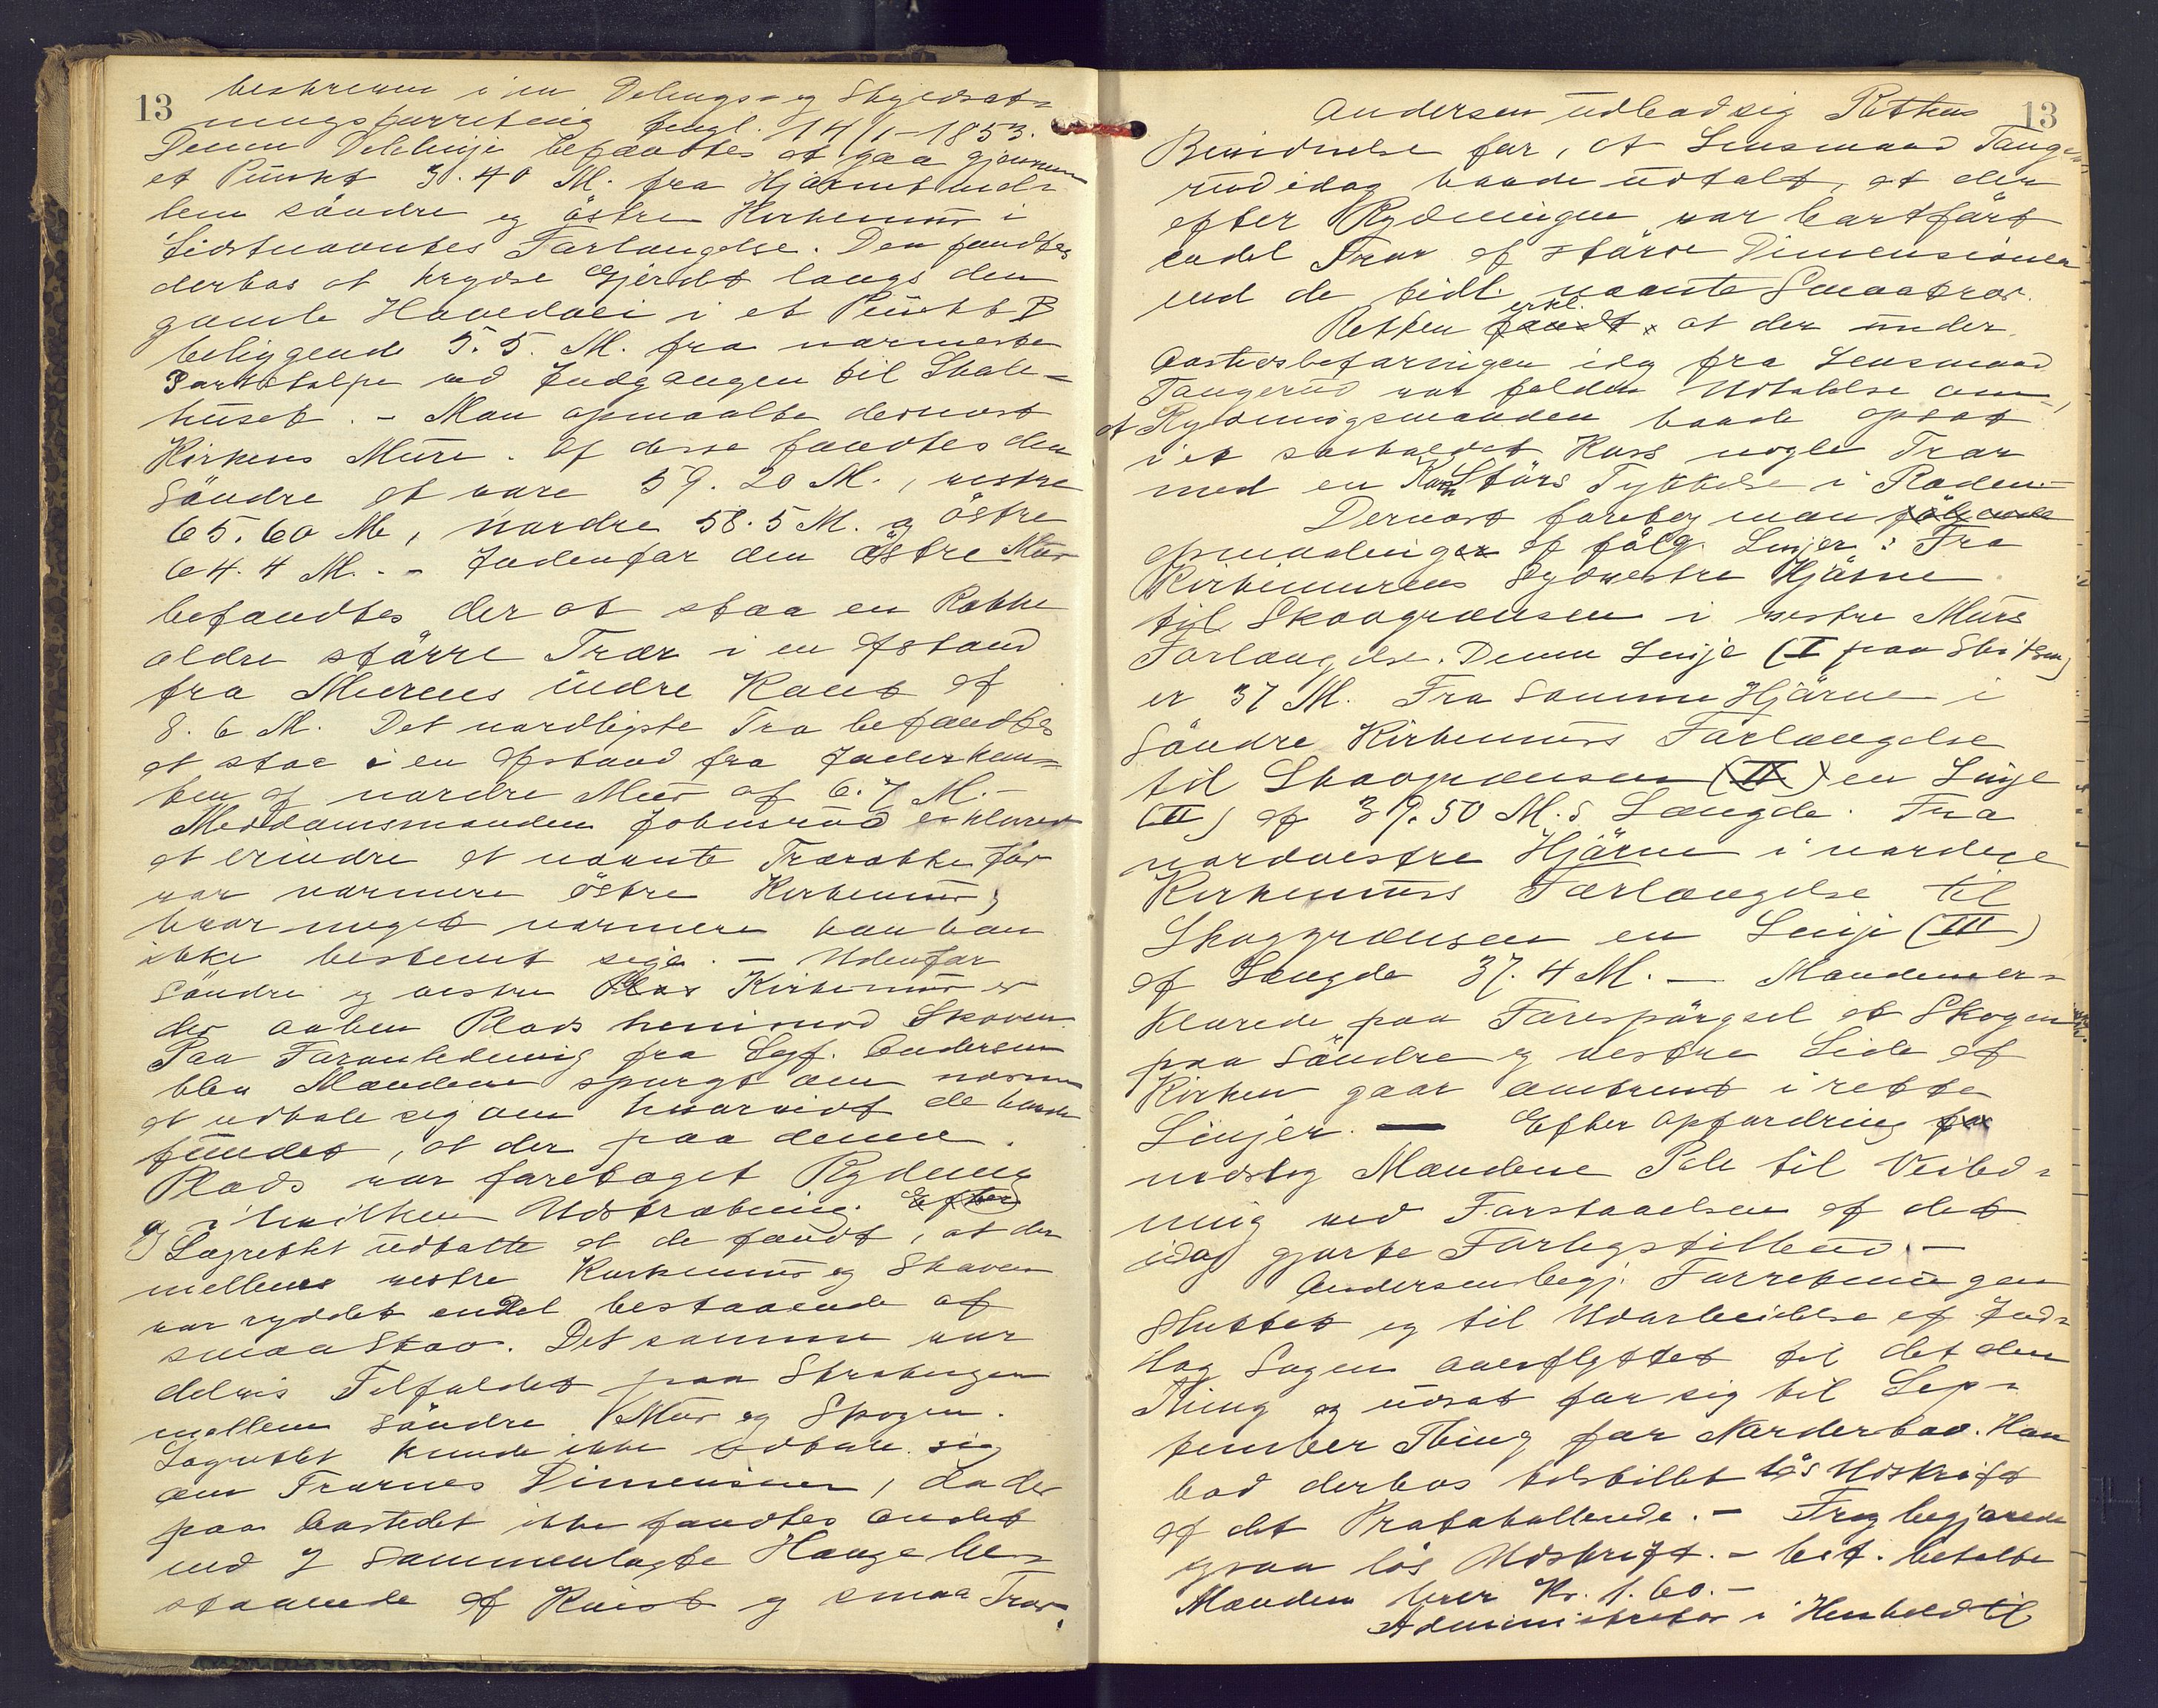 13
beskreven i en Delings- og Skyldsæt=
ningsforretning tingl. 14/1-1853.
Denne Delelinje befandtes at gaa gjennem
et Punkt 3.40 M. fra Hjørnet mel=
lem søndre og østre Kirkemur i
sidstnævntes Forlængelse. Den fandtes
derhos at krydse Gjerdet langs den
gamle Hovedvei i et Punkt B
beliggende 5.5. M. fra nærmeste
Portstolpe ved Indgangen til Skole-
huset. - Man opmaalte dernæst
Kirkens Mure. Af disse fandtes den
Søndre at være 59.20 M., vestre
65.60 M, nordre 58.5 M. og østre
64.4 M. - Indenfor den østre Mur
befandtes der at staa en Række
ældre større Trær i en Afstand
fra Murens indre Kant af
8.6 M. Det nordligste Træ befandtes
at staa i en Afstand fra Inderkan=
ten af nordre Mur af 6.7 M. -
Meddomsmanden Johnsrud erklæret
at erindre at nævnte Trærække før
var nærmere østre Kirkemur,
hvor meget nærmere kan han
ikke bestemt sige. - Udenfor
Søndre og vestre Kirkemur er
der aaben Plads henimod Skoven.
Paa Foranledning fra Sagf. Andersen
blev Mændene spurgt om
at udtale sig om hvorvidt de havde
fundet, at der paa denne
Plads var foretaget Rydning
og i hvilken Udstrækning. Efter
Lagrettet udtalte at de fandt, at der
mellem vestre Kirkemur og Skoven
var ryddet endel bestaaende af
smaaSkov. Det samme var
delvis Tilfældet paa Strækningen
mellem søndre Mur og Skogen.
Lagrettet kunde ikke udtale sig
om Trærnes Dimensioner, da der
paa Aastedet ikke fandtes andet
end 7 sammenlagte Hauge be=
staaende af Kvist og smaa Trær.
13
Andersen udbad sig Rettens
Bevidnelse for, at Lensmand Tange
rud idag havde udtalt, at der
efter Rydningen var bortført
endel Trær af større Dimensioner
end de tidl. nævnte Smaatrær.
erkl.
Retten fandt at der under
Aastedsbefaringen idag fra Lensmand
Tangerud var falden Udtalelse om,
at Rydningsmanden havde opsat
i et saakaldet Kass nogle Trær
med en Størs Tykkelse i Roden. -
Dernæst foretog man følgende
opmaalinger af følg. Linjer: Fra
Kirkemurens Sydvestre Hjørne
til Skovgrænsen i vestre Murs
Forlængelse. Denne Linje (I paa Skitsen)
er 37 M. Fra samme Hjørne i
Søndre Kirkemurs Forlængelse
til Skovgrænsen (II) en Linje
(II) af 39.50 M.s Længde. Fra
nordvestre Hjørne i nordre
Kirkemurs Forlængelse til
Skoggrænsen en Linje (III)
af Længde 37.4 M. - Mændene er=
klærede paa Forespørgsel at Skogen
paa Søndre og vestre Side af
Kirken gaar omtrent i rette
Linjer. — Efter Opfordring fra
nedslog Mændene Pele til Veiled=
ning ved Forstaaelsen af det
idag gjorte Forligstilbud. -
Andersen begj. Forretningen
Sluttet og til Udarbeidelse af Ind=
læg Sagen overflyttet til det alm
Thing og udsat for sig til Sep=
tember Thing for Norderhov. Han
bad derhos tilstillet løs Udskrift
af det Protokollerede. - Frog begjærede
ogsaa løs Udskrift. - betalte
Manden hver Kr. 1.60. -
Administrator i Henhold til